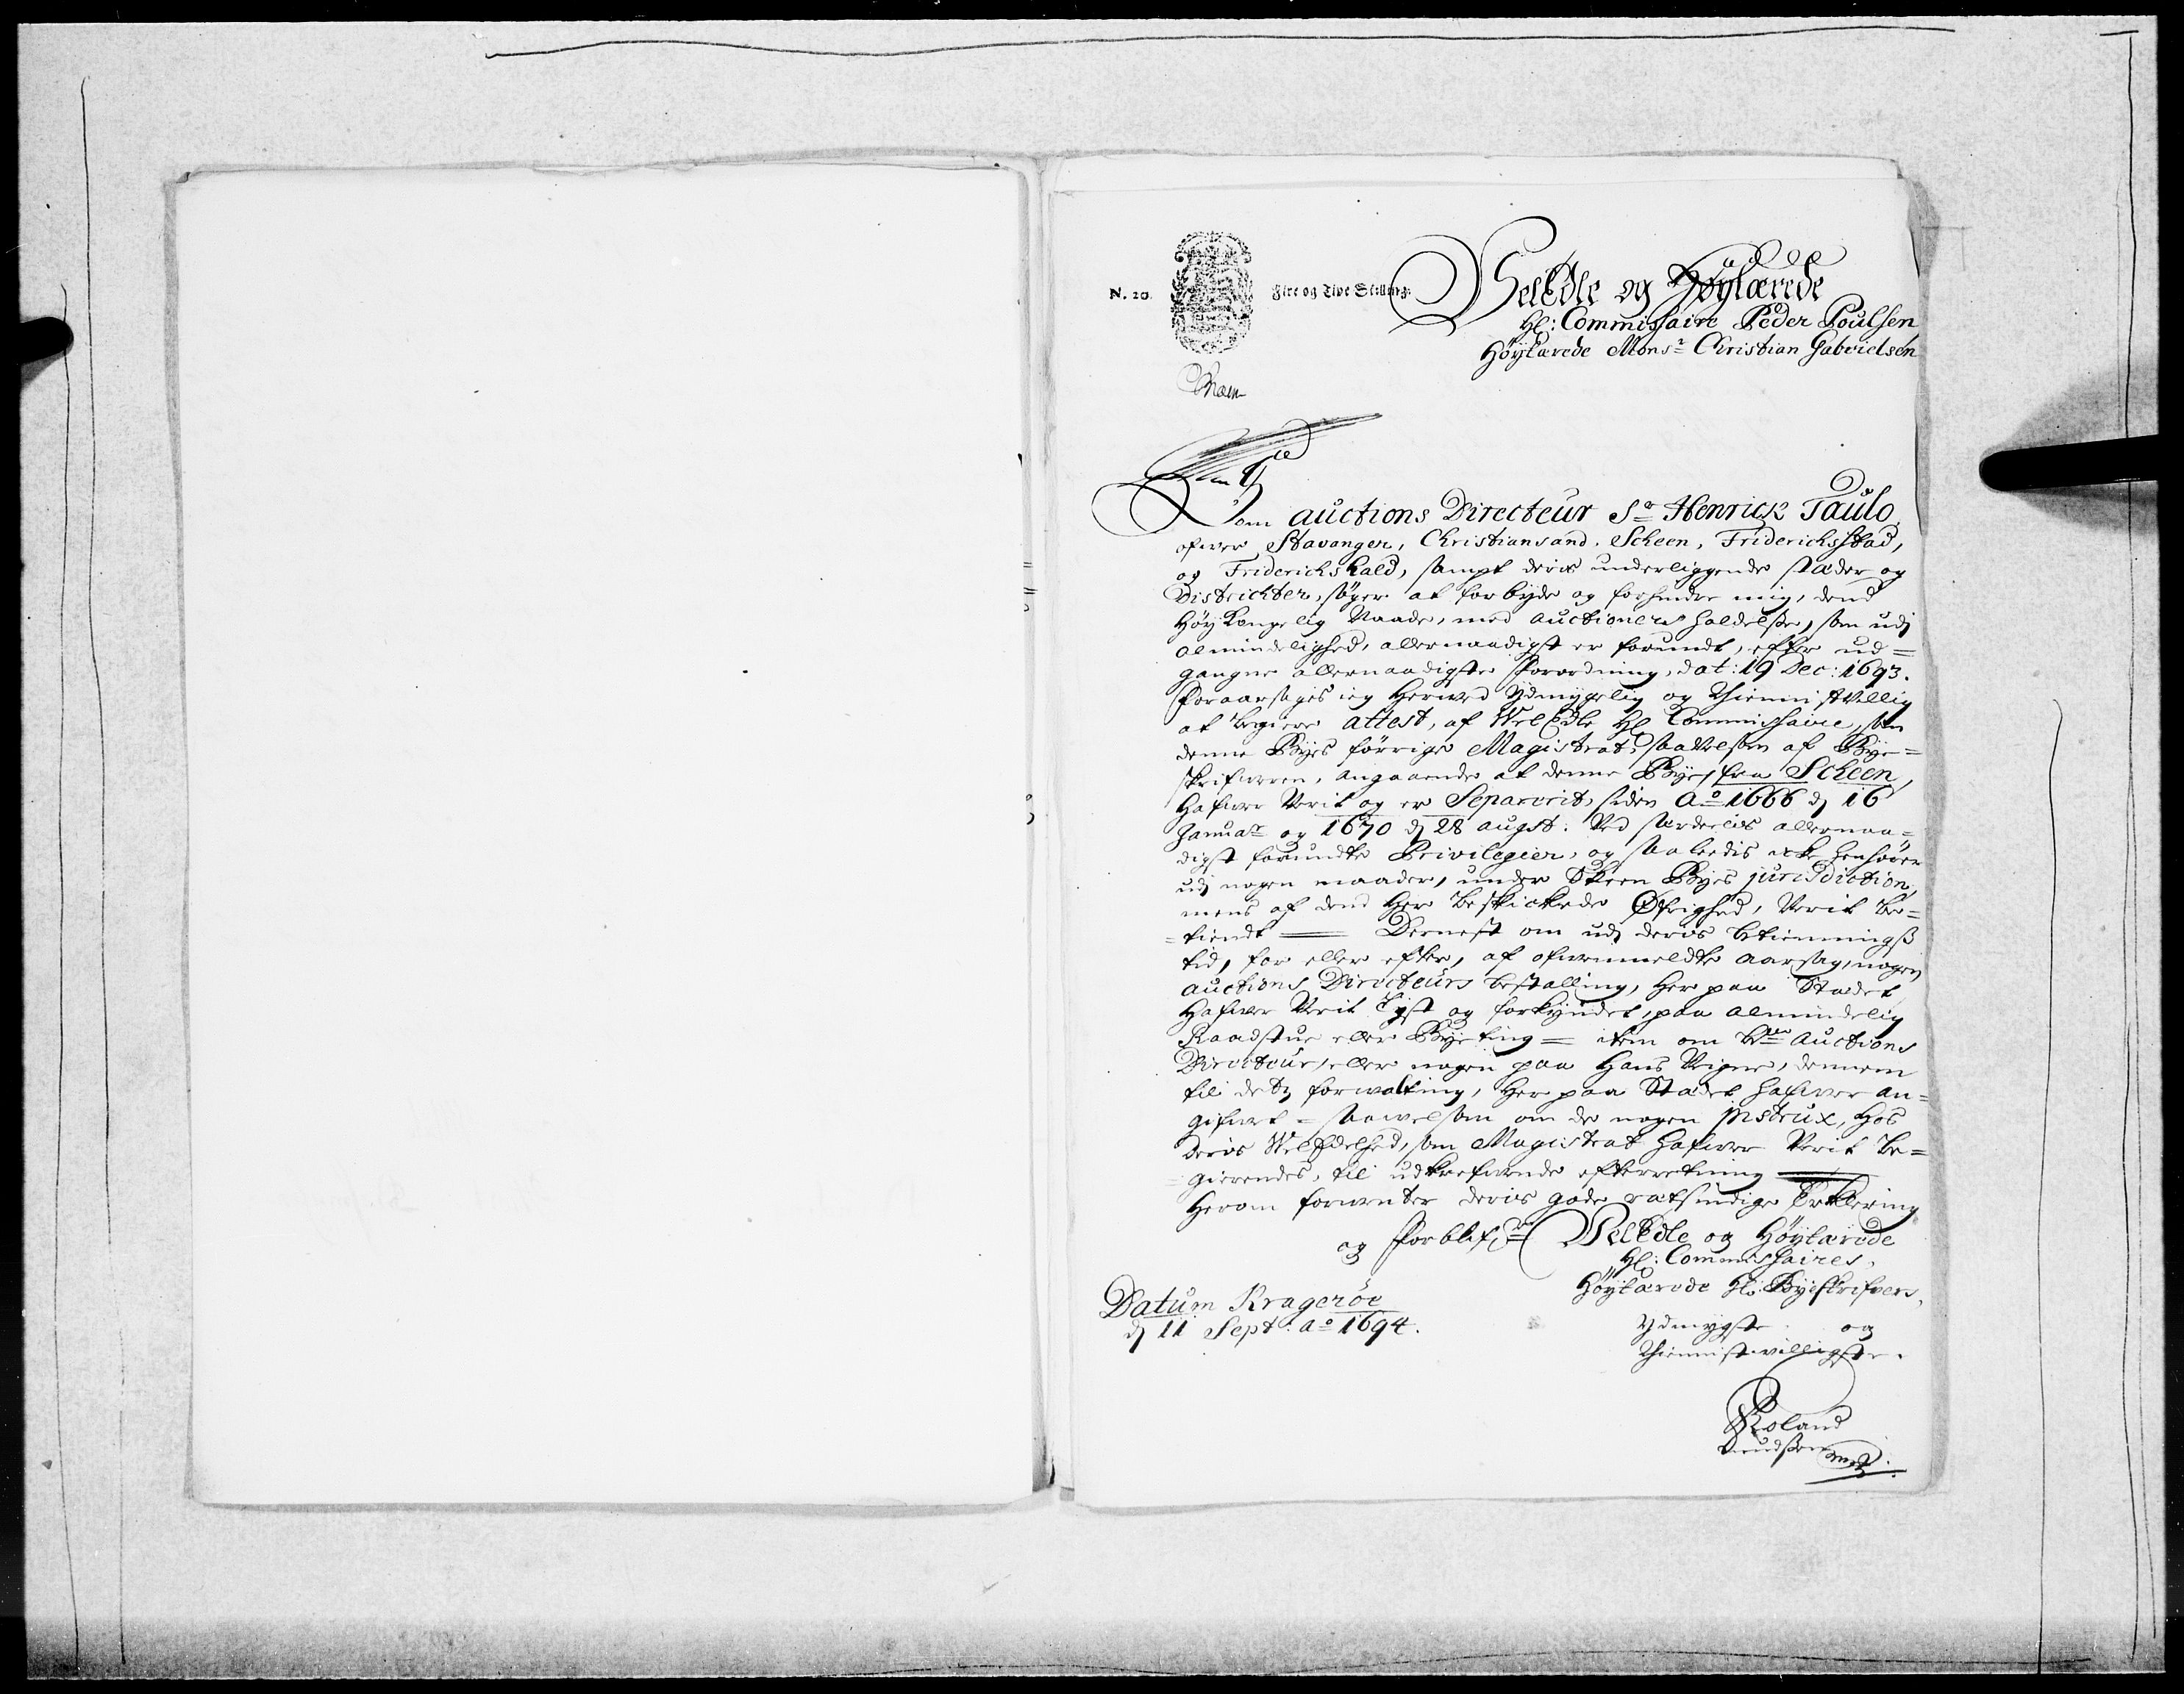 N. 20.
Fire og Tive Skilling.
VelEdle og Höylærede
Hr: Commissaire Peder Poulsen
Höylærede Monsr Christian Gabrielsen
Som auctions Directeur Sr Henrick Paulo
ofver Stavanger, Christiansand, Scheen, Friderichstad,
og Friderichshald, sampt deris underliggende stæder og
Districhter, söger at forbyde og forhindre mig, dend
Höy Kongelig Naade, med auctioners holdelse, som udj
almindelighed, allernaadigst er forundt, efter ud=
gangne allernaadigste forordning, dat: 19 Dec: 1693.
foraarsagis ieg herved ydmygelig og thienistvillig
at begiere attest, af VelEdle Hr Commissaire, som
denne Byes forrige Magistrat, saavelsom af Bye=
skrifveren, angaaende at denne Bye, fra Scheen,
hafver verit og er Separerit, siden Ao 1666 d 16
Januar og 1670 d 28 augst: ved særdeelis allernaa=
digst forundte Privilegier, og saaledis icke henhörer
udj nogen maader, under Skeen Byes jurisdiction,
mens af dend her beskickede Øfrighed, verit be=
=tiendt — Dernest om udj deris betienningß
tid, for eller efter, af ofvermeldte aarsag, nogen
auctions Directeurs bestalling, her paa Stædet
hafver verit lyst og forkyndet, paa almindelig
Raadstue eller Byeting = item om bte Auctions
Directeur, eller nogen paa hans vegne, dennem
til dets forvalting, her paa Stædet hafver an=
gifvet = saavelsom om de nogen jnstrux, hos
deris VelEdelhed, som Magistrat hafver verit be=
gierendes, til udkrefvende efterretning
herom forventer deris gode retsindige Erklering
og forblifr VelEdle og Höylærede
Hr: Commissaires,
Höylærede Hr: Byeskrifvers,
Datum Krageröe
d 11 Sept: ao 1694.
Ydmygste og
thienistvilligste.
Roland
Knudßen